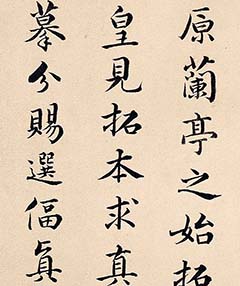 原蘭亭之始拓
皇見拓本求真
摹分賜選偪真